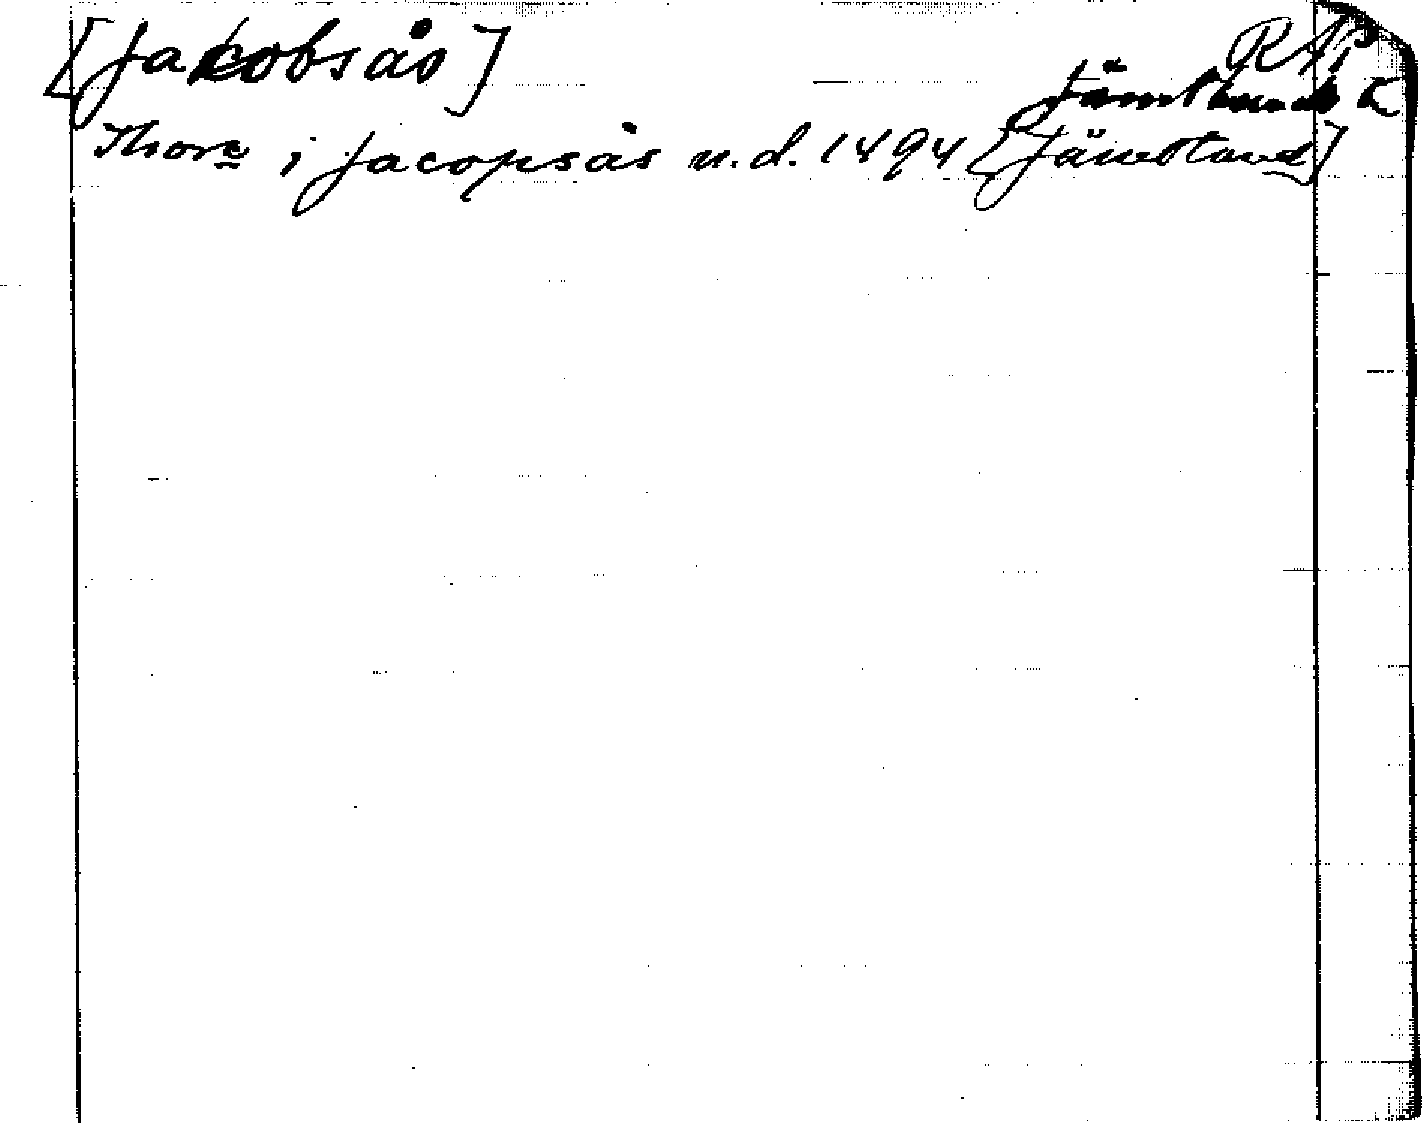 [Jakobsås]
RAP
Jämtlands L
Thore i Jacopsås u.d. 1494 [Jämtland]